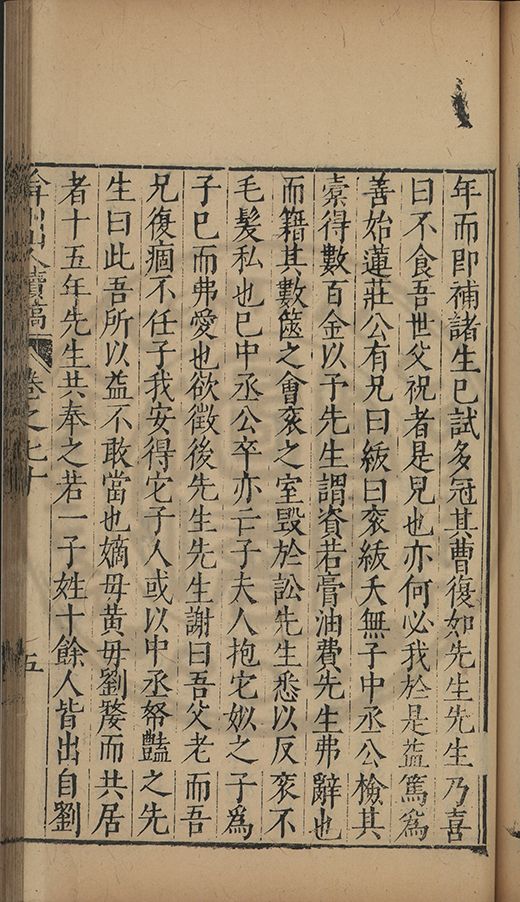 年而即補諸生已試多冠其曹復如先生先生乃喜
曰不食吾世父祝者是兒也亦何必我於是益篤為
善始蓮莊公有兄曰紱曰袞紱夭無子中丞公檢其
橐得數百金以予先生謂資若膏油費先生弗辭也
而籍其數篋之會袞之室毀於訟先生悉以反袞不
毛髮私也已中丞公卒亦亡子夫人抱它姒之子為
子已而弗愛也欲徵後先生先生謝曰吾父老而吾
兄復痼不任子我安得它子人或以中丞帑豔之先
生曰此吾所以益不敢當也嫡母黃母劉嫠而共居
者十五年先生共奉之若一子姓十餘人皆出自劉
弇州山人續稿 卷之七十 五